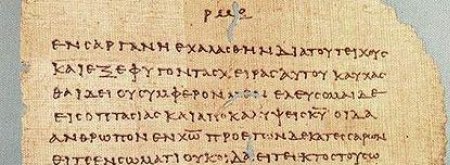 ΕΝϹΑΡΓΑΝΗΕΧΑΛΑϹΘΗΝΔΙΑΤΟΥΤΕΙΧΟΥϹ
ΚΑΙΕΞΕΦΥΓΟΝΤΑϹΧΕΙΡΑϹΑΥΤΟΥΚΑΥΧΑϹ
ΘΑΙΔΕΙΟΥϹΥΜΦΕΡΟΝΜΕΝΕΛΕΥϹΟΜΑΙΔΕ
ΕΙϹΟΠΤΑϹΙΑϹΚΑΙΑΠΟΚΑΛΥΨΕΙϹΚ̅Υ̅ΟΙΔΑ
ΑΝΘΡΩΠΟΝΕΝΧ̅Ω̅ΠΡΟΕΤΩΝΔΕΚΑΤΕϹϹΑΡΩΝ
ΕΙΤΕΕΝϹΩΜΑΤΙΟΥΚΟΙΔΑΕΙΤΕΕΚΤΟϹΤΟΥϹΩ